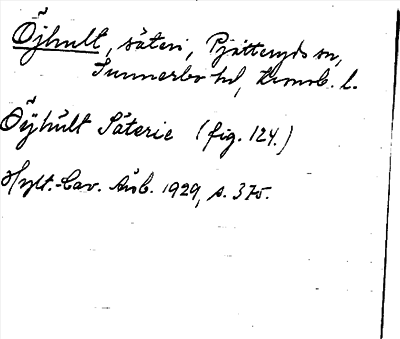 Öjhult, säteri, Pjätteryds sn,
Sunnerbo hd, Kronob. l.
Öÿhult Säterie (fig. 124.)
Hylt.-Cav. Årsb. 1929, s. 375.